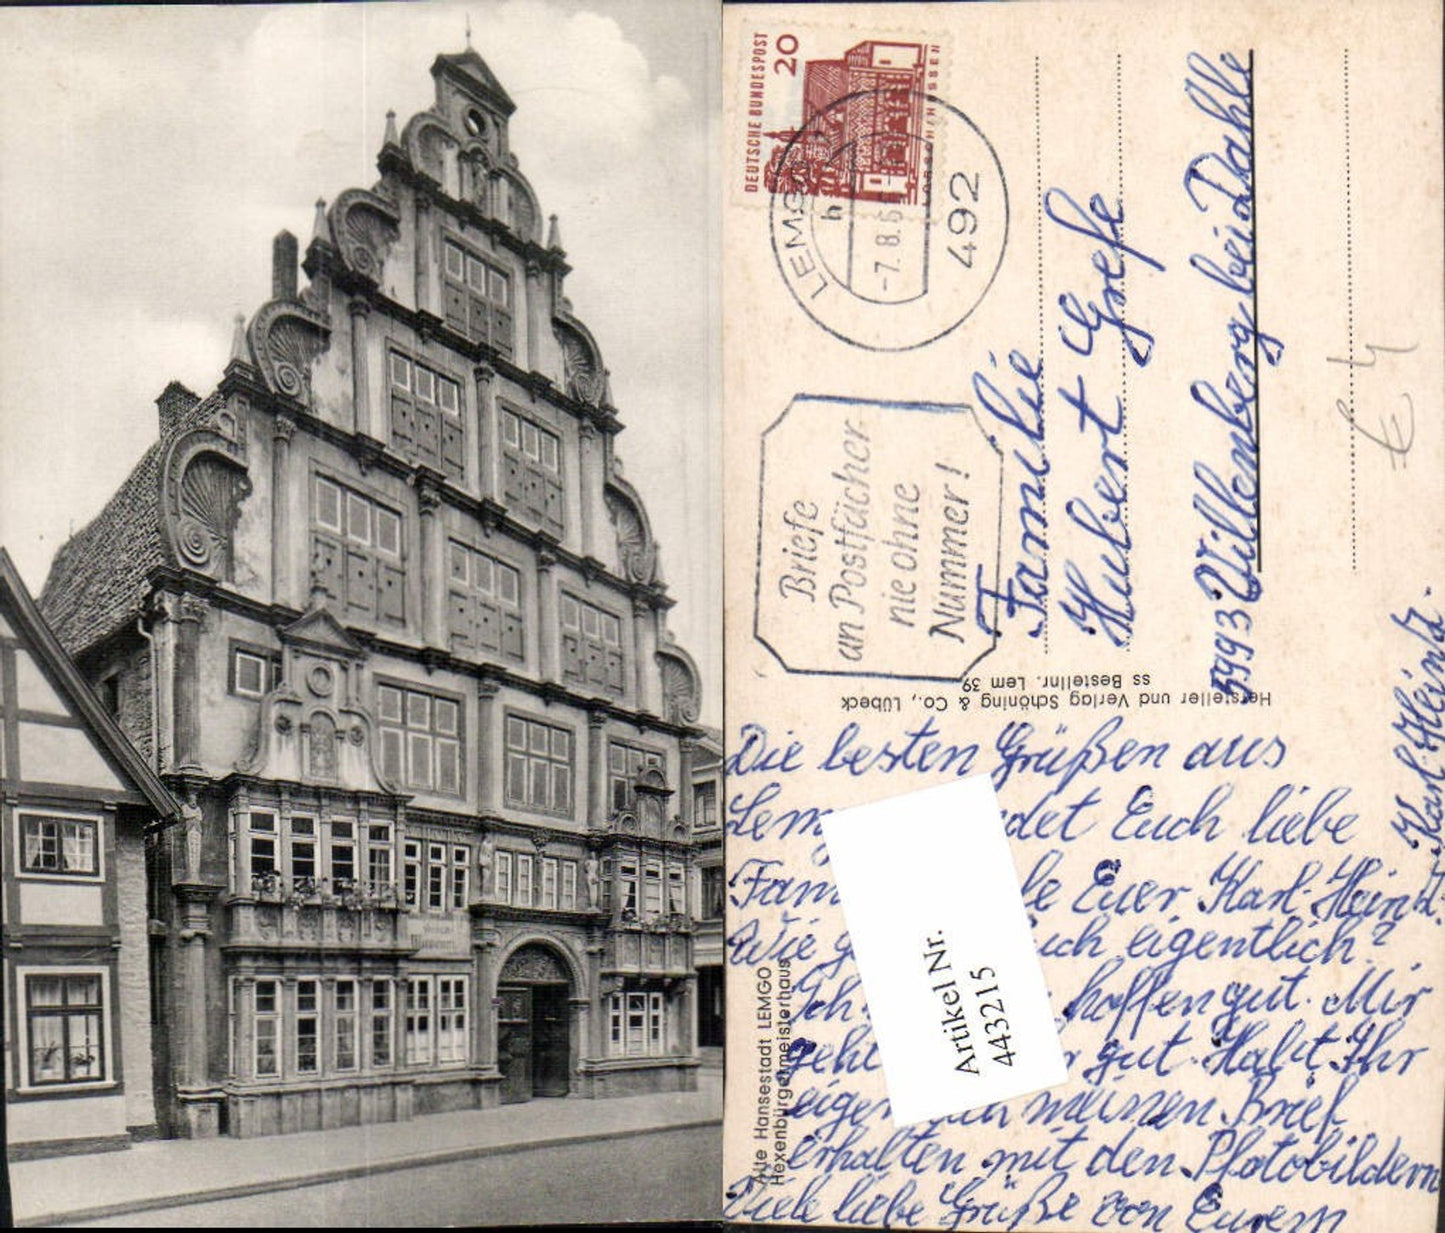 Museum
DEUTSCHE BUNDESPOST
20
LORSCH/HESSEN
LEMGO
h
-7.8.6
492
Briefe
an Postfächer
nie ohne
Nummer!
Familie
Hubert Grefe
5993 Villenberg bei Dahle
€ 4
Hersteller und Verlag Schöning & Co., Lübeck
ss Bestellnr. Lem 39
Alte Hansestadt LEMGO
Hexenbürgermeisterhaus
Die besten Grüßen aus
Lem det Euch liebe
Fam le Euer Karl-Heinz.
Wie g uch eigentlich?
Ich hoffen gut. Mir
geht gut. Habt Ihr
eigen meinen Brief
erhalten mit den Photobildern
Viele liebe Grüße von Eurem
Karl-Heinz.
Artikel Nr.
443215